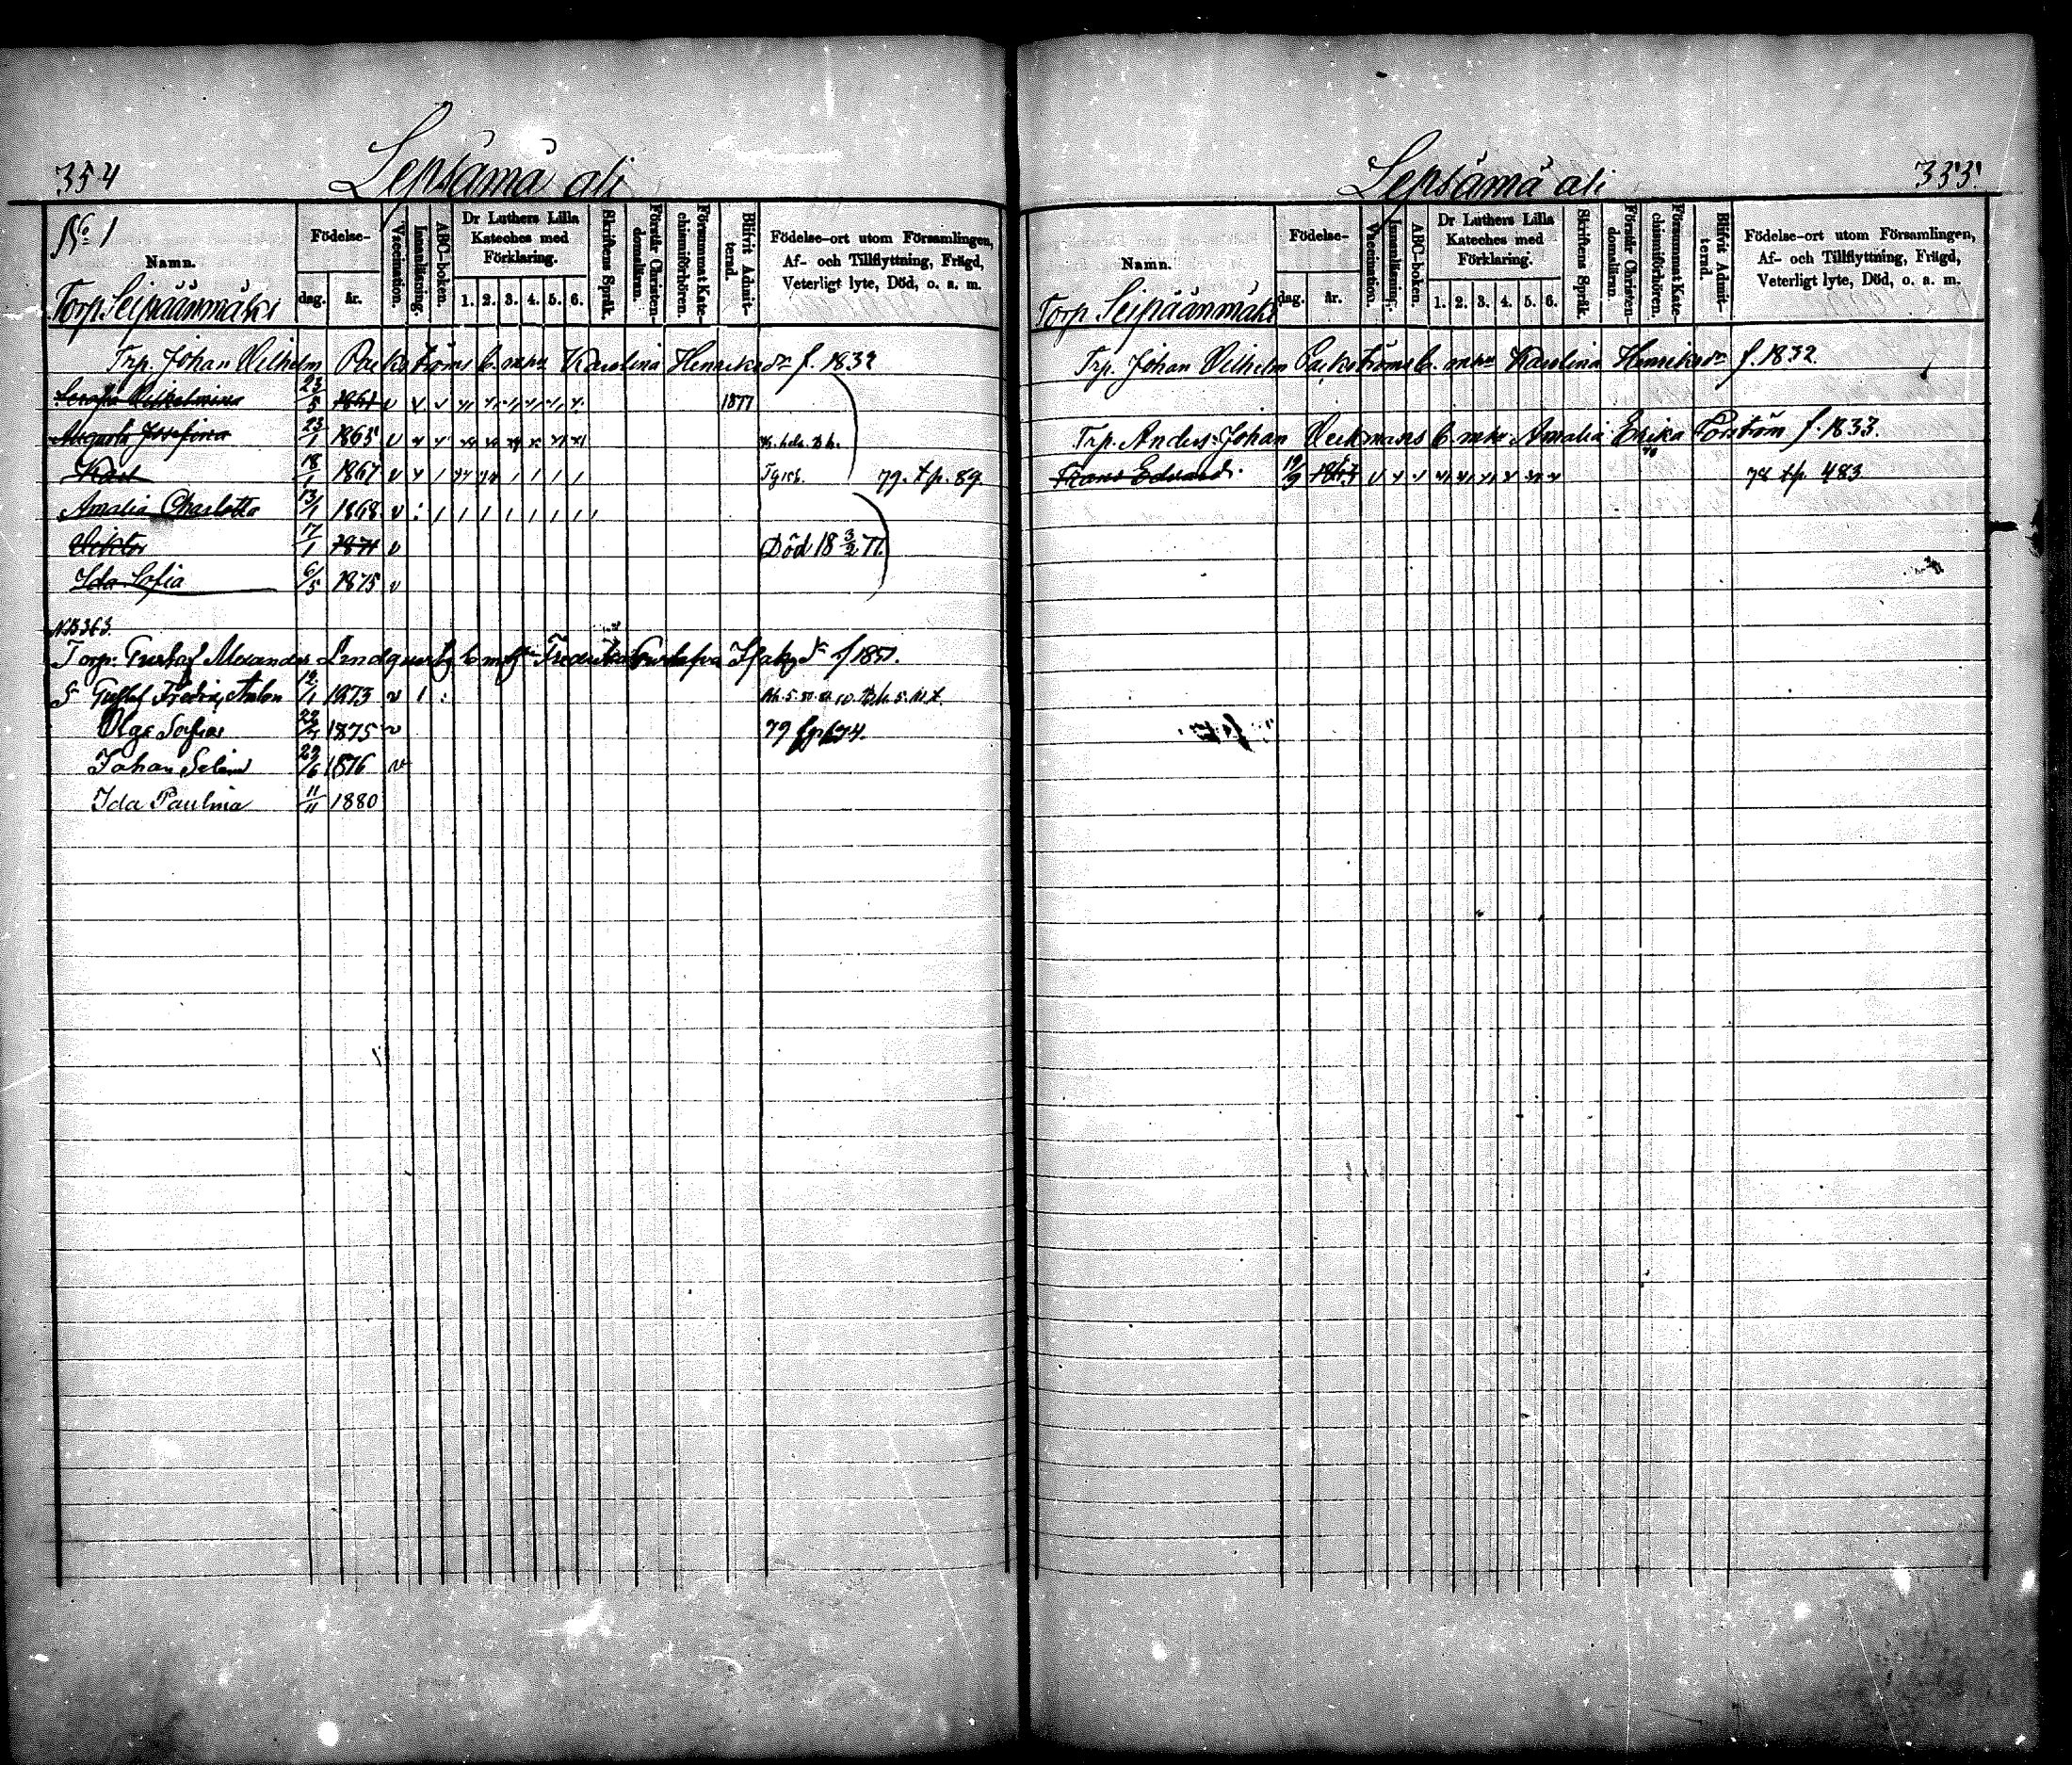 354
Lepsämä ali
No 1
Namn.
Torp Seipäänmäki
Födelse-
dag. år.
Vaccination.
Innanläsning.
ABC-boken.
Dr Luthers Lilla
Kateches med
Förklaring.
1. 2. 3. 4. 5. 6.
Skriftens Språk.
Förstår Christen-
domsläran.
Försummat Kate-
chismiförhören.
Blifvit Admit-
terad.
Födelse-ort utom Församlingen,
Af- och Tillflyttning, Frägd,
Veterligt lyte, Död, o. a. m.
Trp. Johan Vilhelm Backströms b. m. hu Karolina Henriksdr f. 1832
Serafia Vilhelmina 23/5 1861 v 1877
Augusta Josefina 23/1 1865 v
Karl 18/1 1867 v 79. tp. 89.
Amalia Charlotta 13/1 1868 v
Viktor 17/1 1871 v Död 18 3/2 77
Ida Sofia 6/5 1875 v
NB 363.
Torp: Gustaf Alexander Lindqvists b. m. h. Fredrika Gustafva f 1851.
Gustaf Fredrik Anton 12/1 1873 v
Olga Sofia 1875 v 79 fp 674.
Johan Selim 29/6 1876 v
Ida Paulina 11/11 1880
Lepsämä ali
355.
Namn.
Torp Seipäänmäki
Födelse-
dag. år.
Vaccination.
Innanläsning.
ABC-boken.
Dr Luthers Lilla
Kateches med
Förklaring.
1. 2. 3. 4. 5. 6.
Skriftens Språk.
Förstår Christen-
domsläran.
Försummat Kate-
chismiförhören.
Blifvit Admit-
terad.
Födelse-ort utom Församlingen,
Af- och Tillflyttning, Frägd,
Veterligt lyte, Död, o. a. m.
Trp. Johan Vilhelm Backströms b. m. hu Karolina Henriksdr f. 1832
Trp. Anders Johan Veckmans b. m. hu Amalia Erika f. 1833.
Frans Edvard 19/9 v 78 tp. 483.